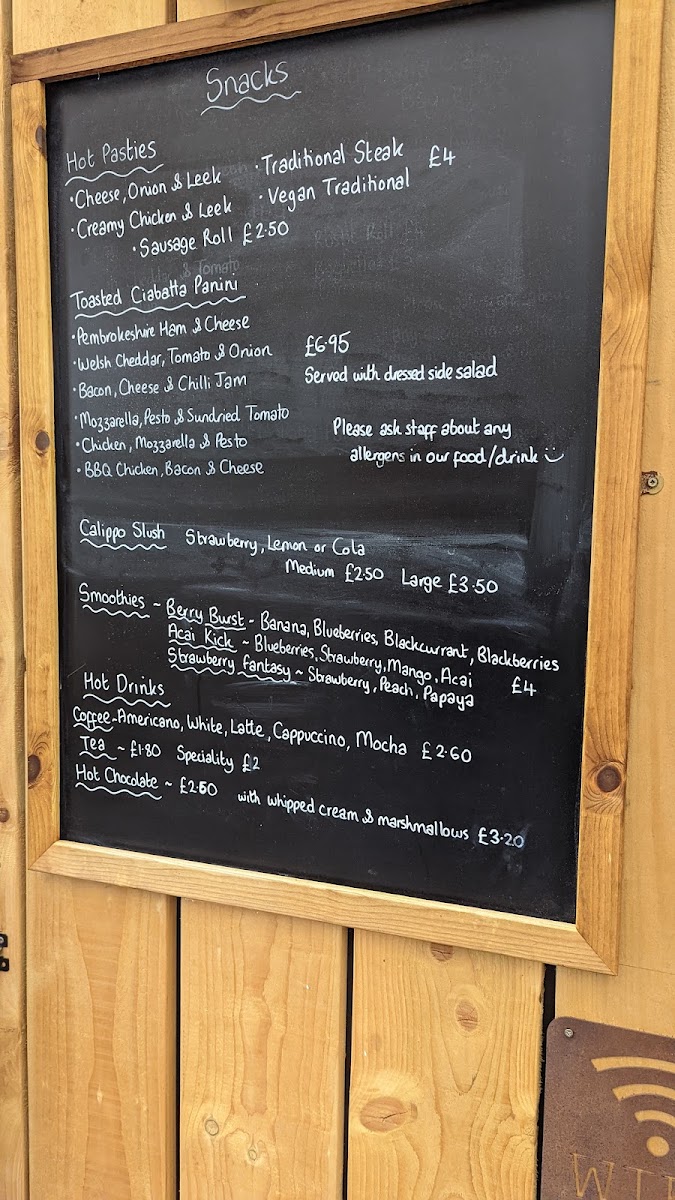 Snacks
Hot Pasties
· Cheese, Onion & Leek · Traditional Steak £4
· Creamy Chicken & Leek · Vegan Traditional
· Sausage Roll £2·50
Toasted Ciabatta Panini
· Pembrokeshire Ham & Cheese
· Welsh Cheddar, Tomato & Onion £6·95
· Bacon, Cheese & Chilli Jam Served with dressed side salad
· Mozzarella, Pesto & Sundried Tomato
· Chicken, Mozzarella & Pesto Please ask staff about any
· BBQ Chicken, Bacon & Cheese allergens in our food/drink
Calippo Slush Strawberry, Lemon or Cola
Medium £2·50 Large £3·50
Smoothies ~ Berry Burst ~ Banana, Blueberries, Blackcurrant, Blackberries
Acai Kick ~ Blueberries, Strawberry, Mango, Acai
Strawberry fantasy ~ Strawberry, Peach, Papaya £4
Hot Drinks
Coffee - Americano, White, Latte, Cappuccino, Mocha £2·60
Tea ~ £1·80 Speciality £2
Hot Chocolate ~ £2·50 with whipped cream & marshmallows £3·20